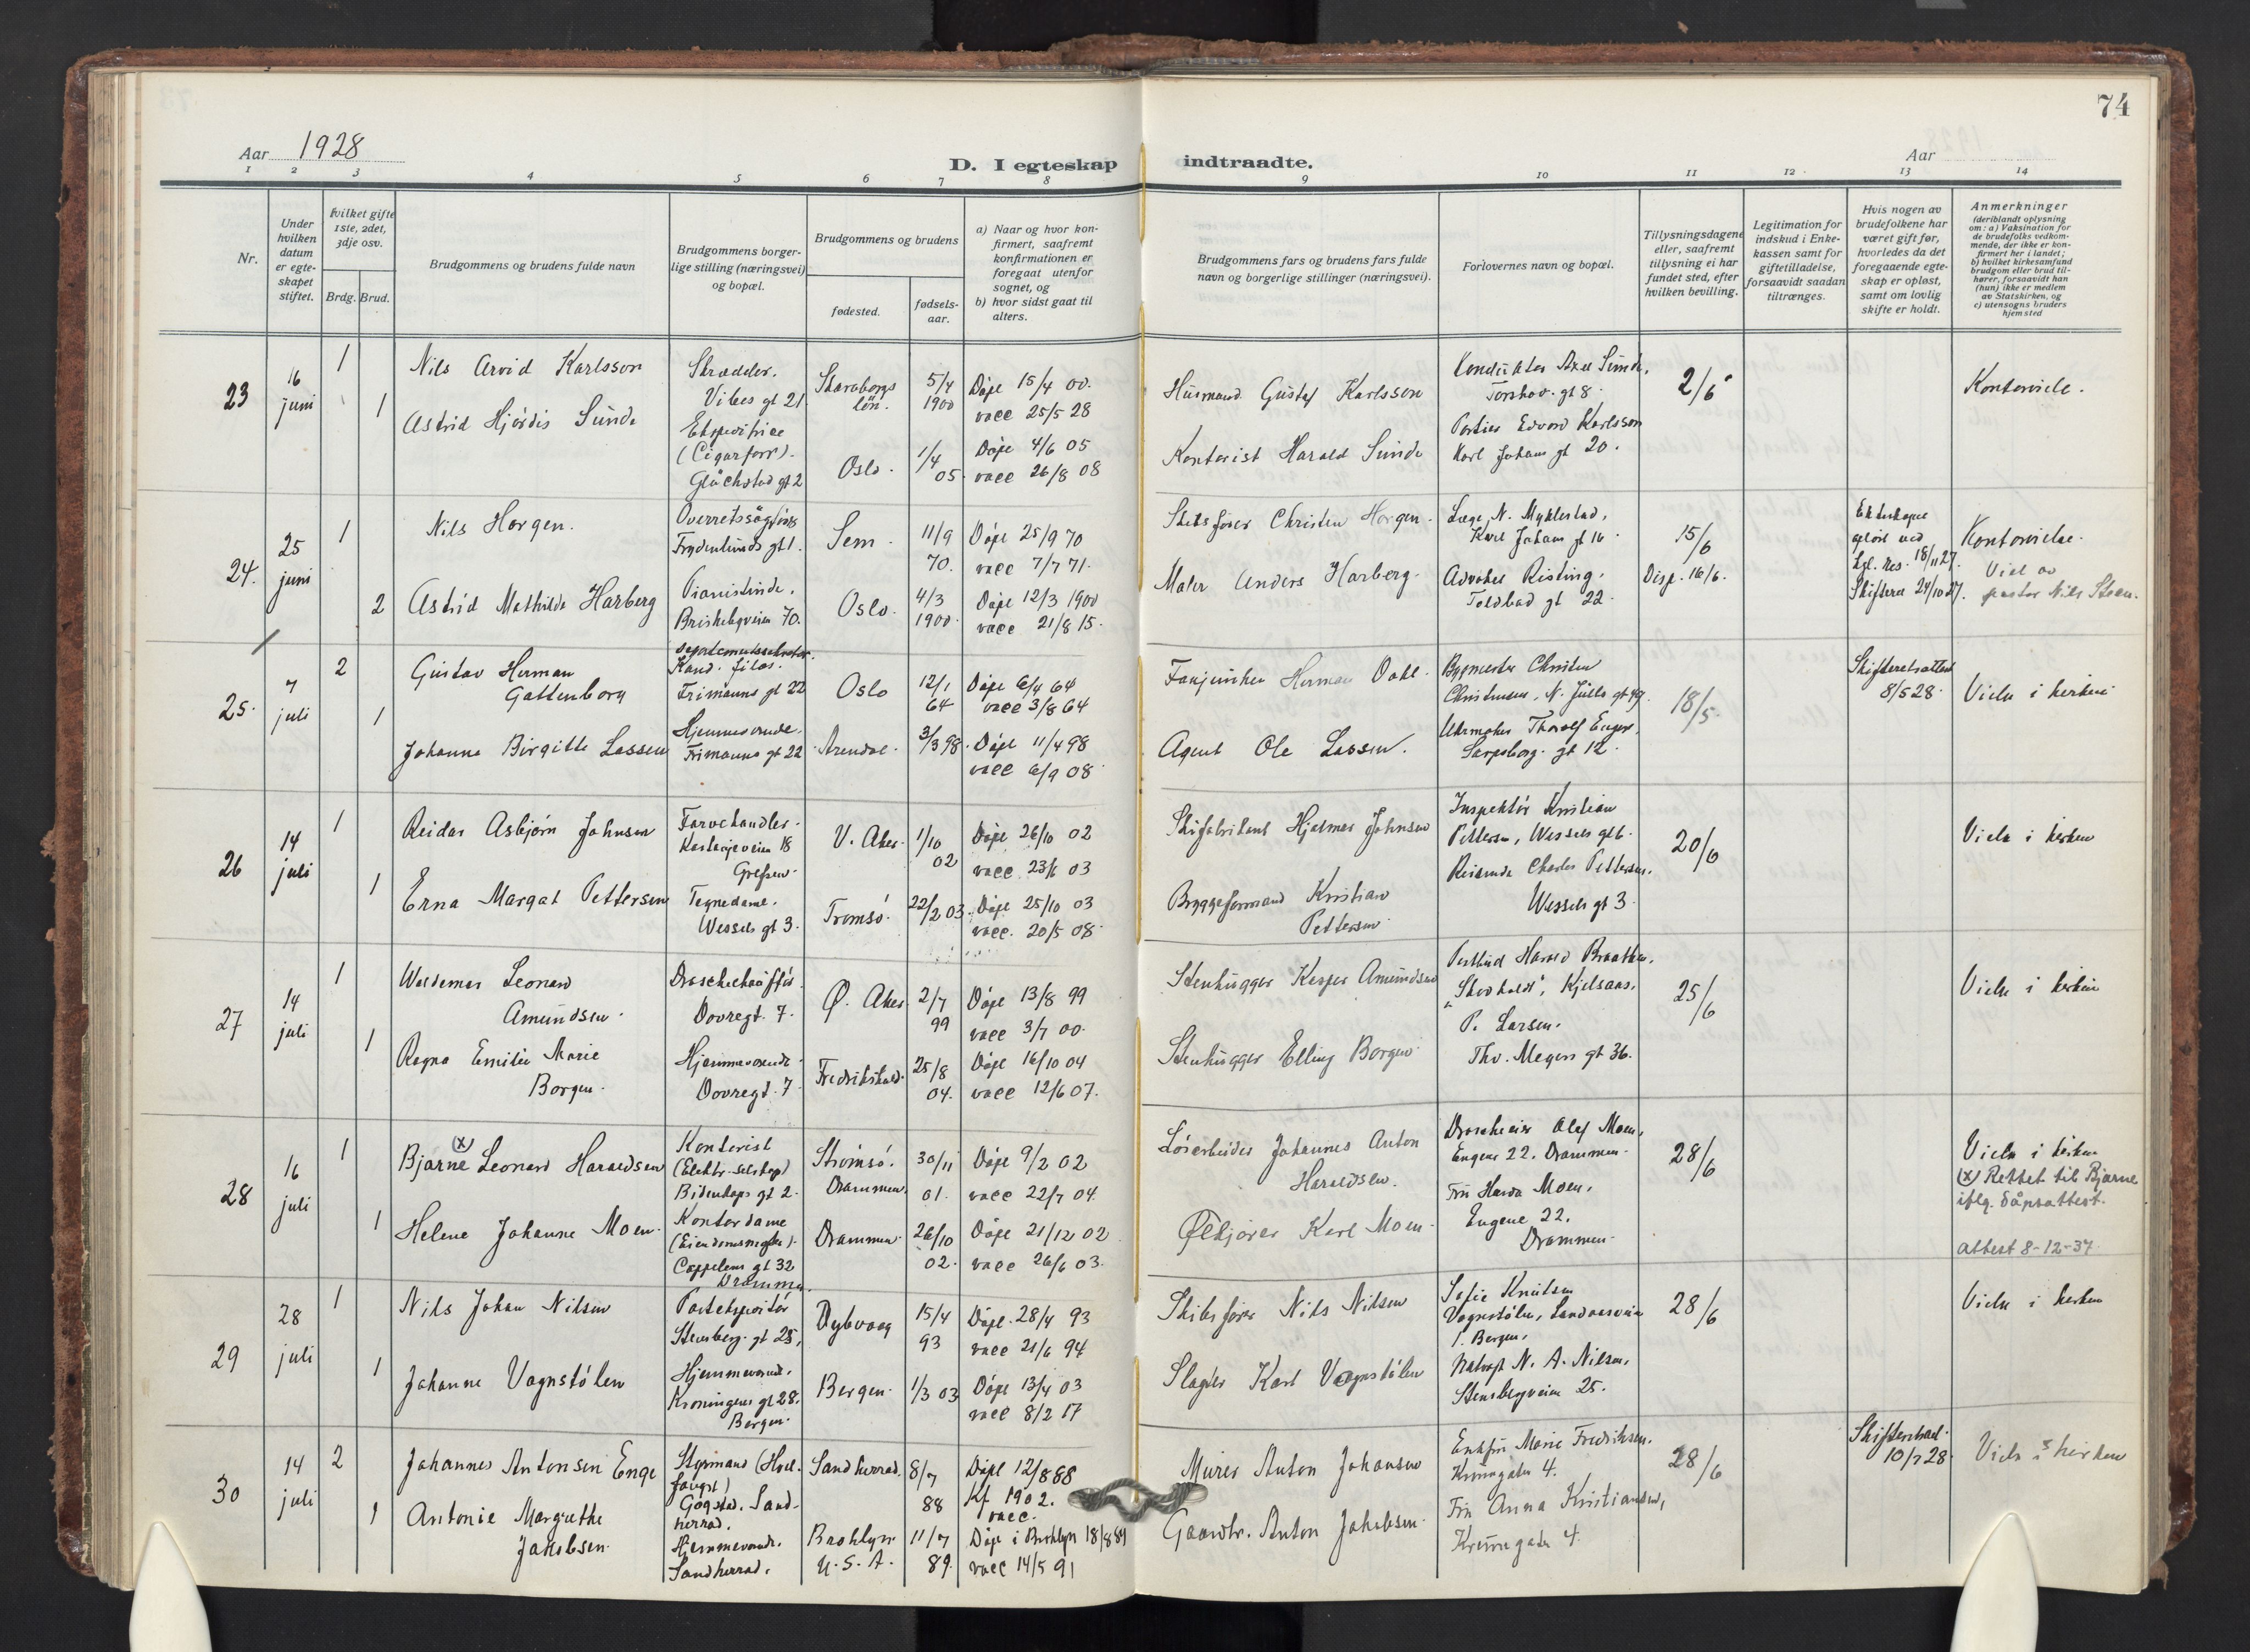 74
Aar 1928
D. I egteskap indtraadte.
Aar
1 2 3 4 5 6 7 8 9 10 11 12 13 14
Nr.
Under hvilken datum er egte-skapet stiftet.
hvilket gifte 1ste, 2det, 3dje osv.
Brdg. Brud.
Brudgommens og brudens fulde navn
Brudgommens borger-lige stilling (næringsvei) og bopæl.
Brudgommens og brudens
fødested.
fødsels-aar.
a) Naar og hvor kon-firmert, saafremt konfirmationen er foregaat utenfor sognet, og
b) hvor sidst gaat til alters.
Brudgommens fars og brudens fars fulde navn og borgerlige stillinger (næringsvei).
Forlovernes navn og bopæl.
Tillysningsdagene eller, saafremt tillysning ei har fundet sted, efter hvilken bevilling.
Legitimation for indskud i Enke-kassen samt for giftetilladelse, forsaavidt saadan tiltrænges.
Hvis nogen av brudefolkene har været gift før, hvorledes da det foregaaende egte-skap er opløst, samt om lovlig skifte er holdt.
Anmerkninger (deriblandt oplysning om: a) Vaksination for de brudefolks vedkom-mende, der ikke er kon-firmert her i landet; b) hvilket kirkesamfund brudgom eller brud til-hører, forsaavidt han (hun) ikke er medlem av Statskirken, og c) utensogns bruders hjemsted
23
16 juni
1
Nils Arvid Karlsson
Skrædder.
Vibes gt 21
Skaraborgs län.
5/4 1900
Døpt 15/4 00.
vacc 25/5 28
Husmand Gustaf Karlsson
Konduktør Axel Sunde,
Torshov. gt 8.
2/6
Kontorvielse.
1
Astrid Hjördis Sunde
Ekspeditrice
(Cigarforr).
Glückstad gt 2
Oslo.
1/4 05.
Døpt 4/6 05
vacc 26/8 08
Kontorist Harald Sunde
Portier Edvard Karlsson
Karl Johans gt 20.
24.
25 juni
1
Nils Horgen.
Overretssagfører
Frydenlunds gt 1.
Sem.
11/9 70.
Døpt 25/9 70
vacc 7/7 71.
Skibsfører Christen Horgen.
Læge N. Myklestad,
Karl Johans gt 16
15/6
Disp. 16/6.
Ekteskapet
opløst ved
kgl. res. 18/11 27.
Skifteret 24/10 27.
Kontorvielse.
Viet av
pastor Nils Steen.
2
Astrid Mathilde Harberg
Pianistinde,
Briskebyveien 70.
Oslo.
4/3 1900.
Døpt 12/3 1900
vacc 21/8 15.
Maler Anders Harberg.
Advokat Risting,
Toldbod gt 22.
25.
7 juli
2
Gustav Herman
Gattenborg
departementssekretær.
Kand. filos.
Frimanns gt 22
Oslo
12/1 64
Døpt 6/4 64
vacc 3/8 64
Fanejunker Herman Dahl.
Bygmester Christen
Christensen, N. Juels gt 49.
18/5.
Skifteretsattest
8/5 28.
Vielse i kirken
1
Johanne Birgitte Lassen
Hjemmeværende.
Frimanns gt 22
Arendal.
3/3 98.
Døpt 11/4 98
vacc 6/9 08
Agent Ole Lassen.
Uhrmaker Thorolf Enger,
Sarpsborg. gt 12.
26
14 juli
1
Reidar Asbjørn Johnsen
Farvehandler.
Kastanjeveien 18
Grefsen.
V. Aker.
1/10 02
Døpt 26/10 02
vacc 23/6 03
Skifabrikant Hjalmar Johnsen
Inspektør Kristian
Pettersen, Wessels gt 6.
20/6
Vielse i kirken
1
Erna Margat Pettersen
Tegnedame.
Wessels gt 3.
Tromsø.
22/2 03.
Døpt 25/10 03
vacc. 20/5 08.
Bryggeformand Kristian
Pettersen.
Reisende Charles Pettersen.
Wessels gt 3.
27
14 juli
1
Waldemar Leonard
Amundsen.
Droschechauffør
Dovregt. 7.
Ø. Aker
2/7 99
Døpt 13/8 99
vacc 3/7 00.
Stenhugger Kasper Amundsen
Postbud Harald Braathen,
"Skodholdt", Kjelsaas.
25/6
Vielse i kirken
1
Ragna Emilie Marie
Borgen.
Hjemmeværende.
Dovregt. 7
Fredrikshald.
25/8 04.
Døpt 16/10 04
vacc 12/6 07.
Stenhugger Elling Borgen.
P. Larsen.
Thv. Meyers gt 36.
28
16 juli
1
(x)
Bjarne Leonard Haraldsen
Kontorist
(Elektr. selskap)
Bidenkaps gt 2.
Strømsø.
Drammen.
30/11 01.
Døpt 9/2 02
vacc 22/7 04.
Løsarbeider Johannes Anton
Haraldsen.
Droscheeier Olaf Moen,
Engene 22. Drammen.
28/6
Vielse i kirken
(x) Rettet til Bjarne
iflg. dåpsattest.
attest 8-12-37.
1
Helene Johanne Moen.
Kontordame
(Eiendomsmegler).
Cappelens gt 32
Drammen.
Drammen.
26/10 02.
Døpt 21/12 02
vacc 26/6 03.
Ølkjører Karl Moen.
Fru Hanna Moen,
Engene 22,
Drammen.
29
28 juli
1
Nils Johan Nilsen
Postekspeditør
Stensberg. gt 25,
Dybvaag
15/4 93
Døpt. 28/4 93
vacc 21/6 94
Skibsfører Nils Nilsen
Sofie Knutsen
Vognstølen, Landaasveien
1. Bergen.
28/6
Vielse i kirken
1
Johanne Vognstølen
Hjemmeværende.
Kroningens gt 28.
Bergen.
Bergen.
1/3 03
Døpt 13/4 03
vacc 8/2 17
Slagter Karl Vognstølen
N. A. Nilsen,
Stensbergveien 25.
30
14 juli
2
Johannes Antonsen Enge
Styrmand (Hval-
fangst)
Gogstad. Sand-
herred.
Sandherred.
8/7 88
Døpt 12/8 88
Kf. 1902.
vacc.
Murer Anton Johansen
Enkfru Marie Fredriksen.
Kruusgaten 4.
28/6
10/7 28.
Vielse i kirken
1
Antonie Margrethe
Jakobsen.
Hjemmeværende.
Sandherred.
Brooklyn
U.S.A.
11/7 89.
Døpt i Brooklyn 18/8 89
vacc 14/5 91
Gaardbr. Anton Jakobsen.
Fru Anna Kristiansen,
Kruusgaten 4.